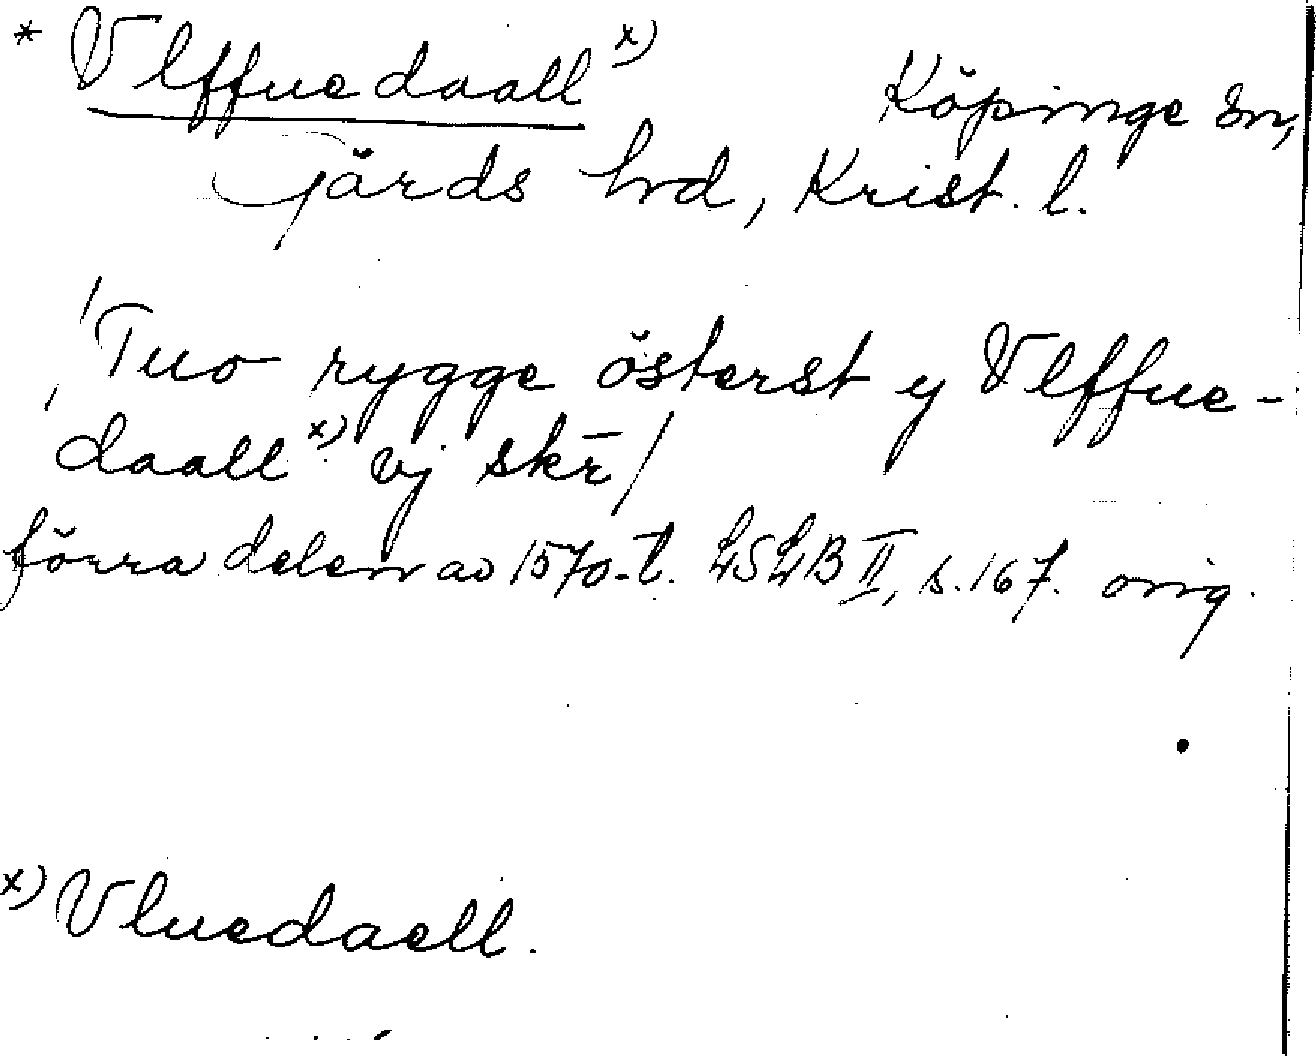 * Vlffuedaall x)
Köpinge sn,
Gärds hd, Krist. l.
/Tuo rygge österst y Vlffue-
daall x) vj skr̄/
förra delen av 1570-t. LSLB II, s. 167. orig.
x) Vluedaell.